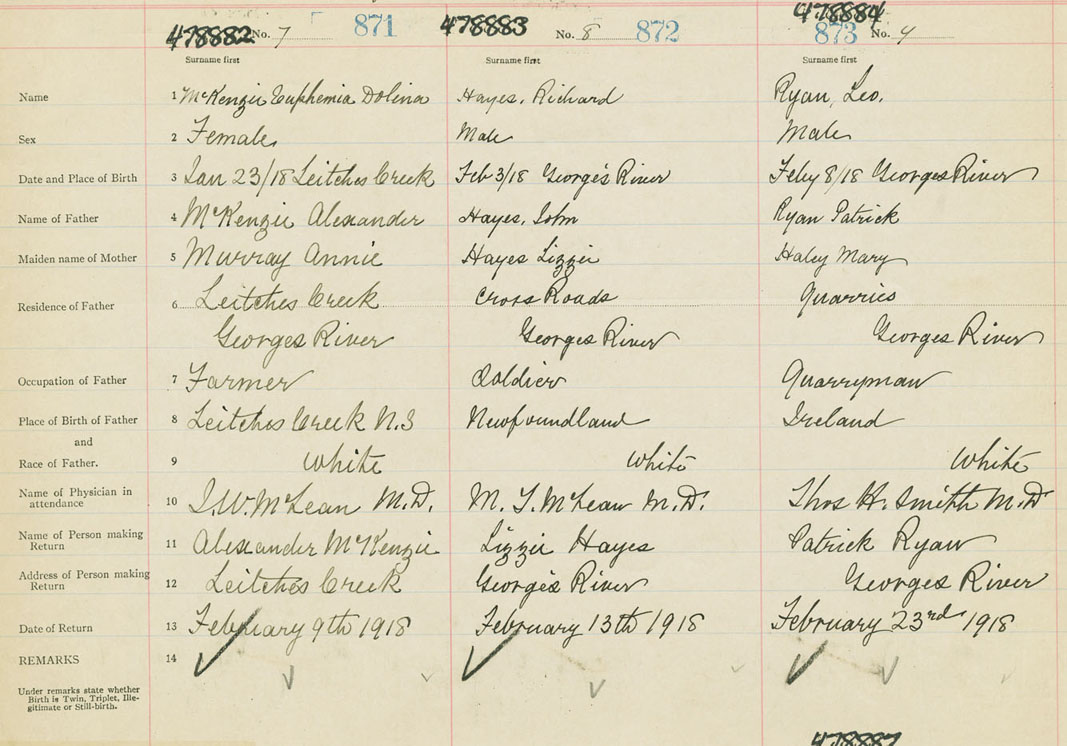 478882 No. 7 871 478883 No. 8 872 478884 873 No. 9
Surname first Surname first Surname first
Name 1 McKenzie Euphemia Dolina Hayes, Richard Ryan, Leo.
Sex 2 Female Male Male
Date and Place of Birth 3 Jan 23/18 Leitches Creek Feb 3/18 George's River Feby 8/18 Georges River
Name of Father 4 McKenzie Alexander Hayes, John Ryan Patrick
Maiden name of Mother 5 Murray Annie Hayes Lizzie Haley Mary
Residence of Father 6 Leitches Creek Cross Roads Quarries
Georges River Georges River Georges River
Occupation of Father 7 Farmer Soldier Quarryman
Place of Birth of Father 8 Leitches Creek N.S Newfoundland Ireland
and
Race of Father. 9 White White White
Name of Physician in
attendance 10 McLean M.D. McLean M.D. Thos H. Smith M.D
Name of Person making
Return 11 Alexander McKenzie Lizzie Hayes Patrick Ryan
Address of Person making
Return 12 Leitches Creek George's River Georges River
Date of Return 13 February 9th 1918 February 13th 1918 February 23rd 1918
REMARKS 14
Under remarks state whether
Birth is Twin, Triplet, Ille-
gitimate or Still-birth.
478887